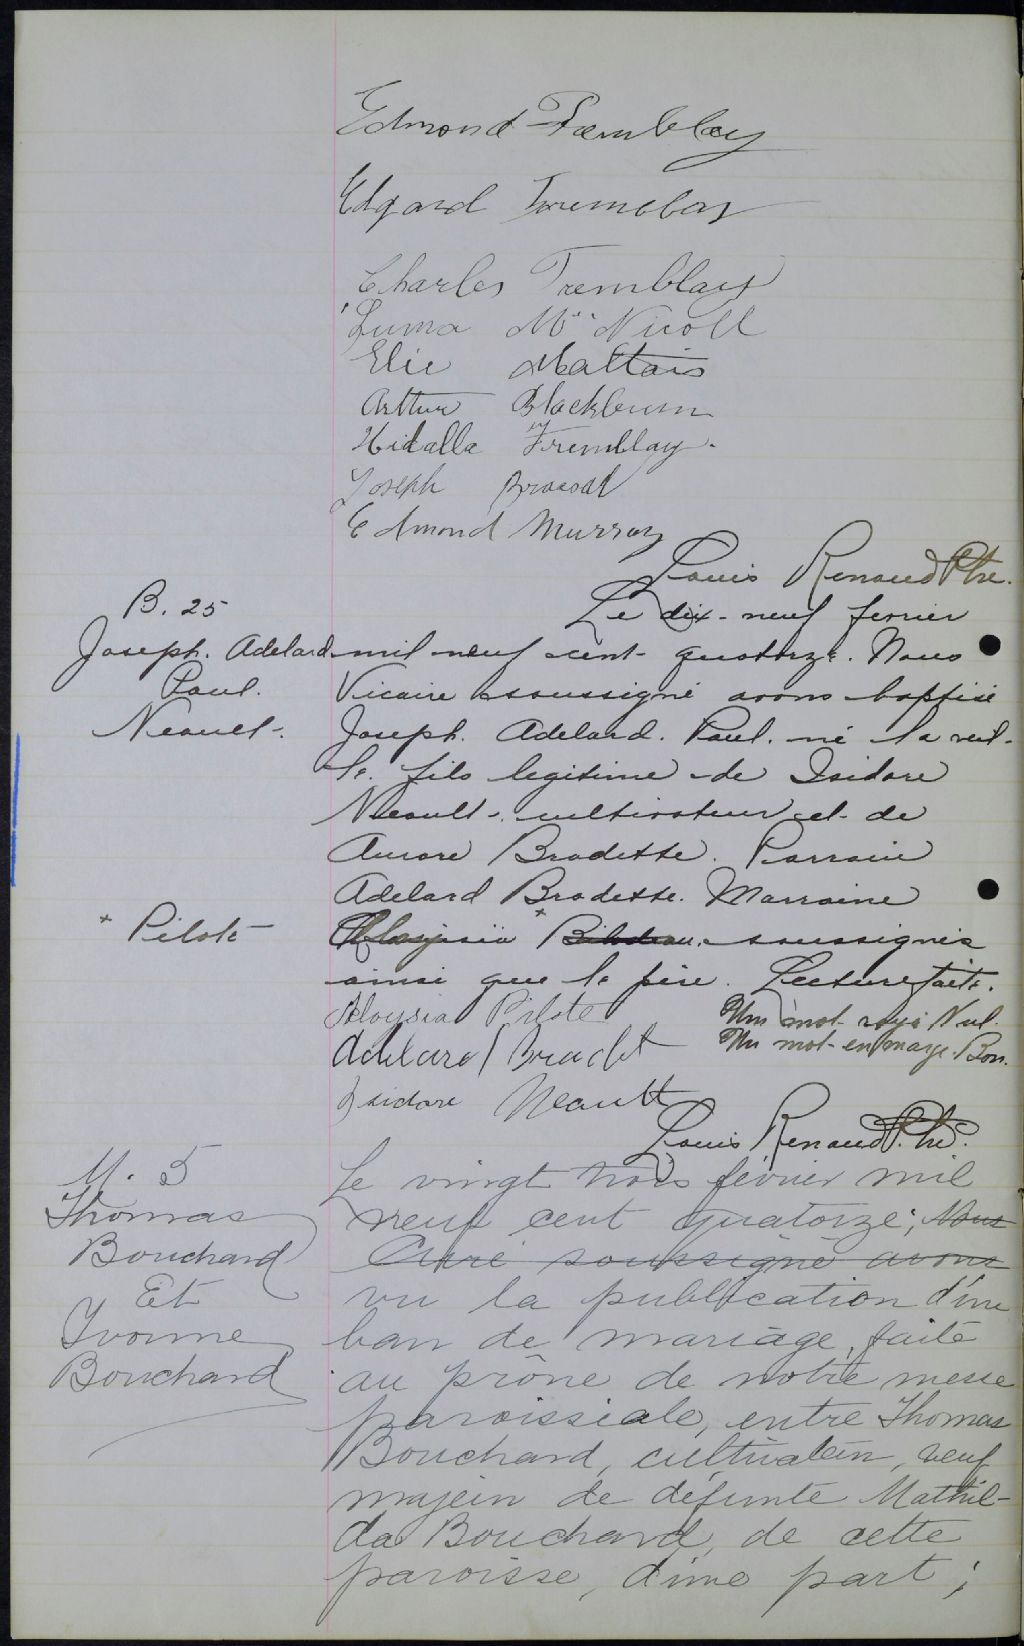 Edmond Tremblay
Edgard Tremblay
Charles Tremblay
Luma Mc Nicoll
Elie Maltais
Arthur Blackburn
Hidalla Tremblay.
Joseph Brassat
Edmond Murray
Louis Renaud Ptre.
B. 25
Joseph. Adelard
Paul.
Neault.
Le dix-neuf fevrier
mil neuf cent quatorze. Nous
Vicaire soussigné avons baptisé
Joseph. Adelard. Paul. né la veil-
le. fils legitime de Isidore
Neault. cultivateur et de
Aurore Bradette. Parrain
Adelard Bradette. Marraine
+ Pilote
Aloysia + Bilodeau. soussignés
ainsi que le père. Lecture faite.
Aloysia Pilote
Un mot rayé Nul.
Un mot en marge. Bon.
Adelard Bradet
Isidore Neault
Louis Renaud Ptre.
M. 5
Thomas
Bouchard
Et
Yvonne
Bouchard
Le vingt trois février mil
neuf cent quatorze; Nous
Curé soussigné avons
vu la publication d'un
ban de mariage, faite
au prône de notre messe
paroissiale, entre Thomas
Bouchard, cultivateur, veuf
majeur de défunte Mathil-
da Bouchard, de cette
paroisse, d'une part;